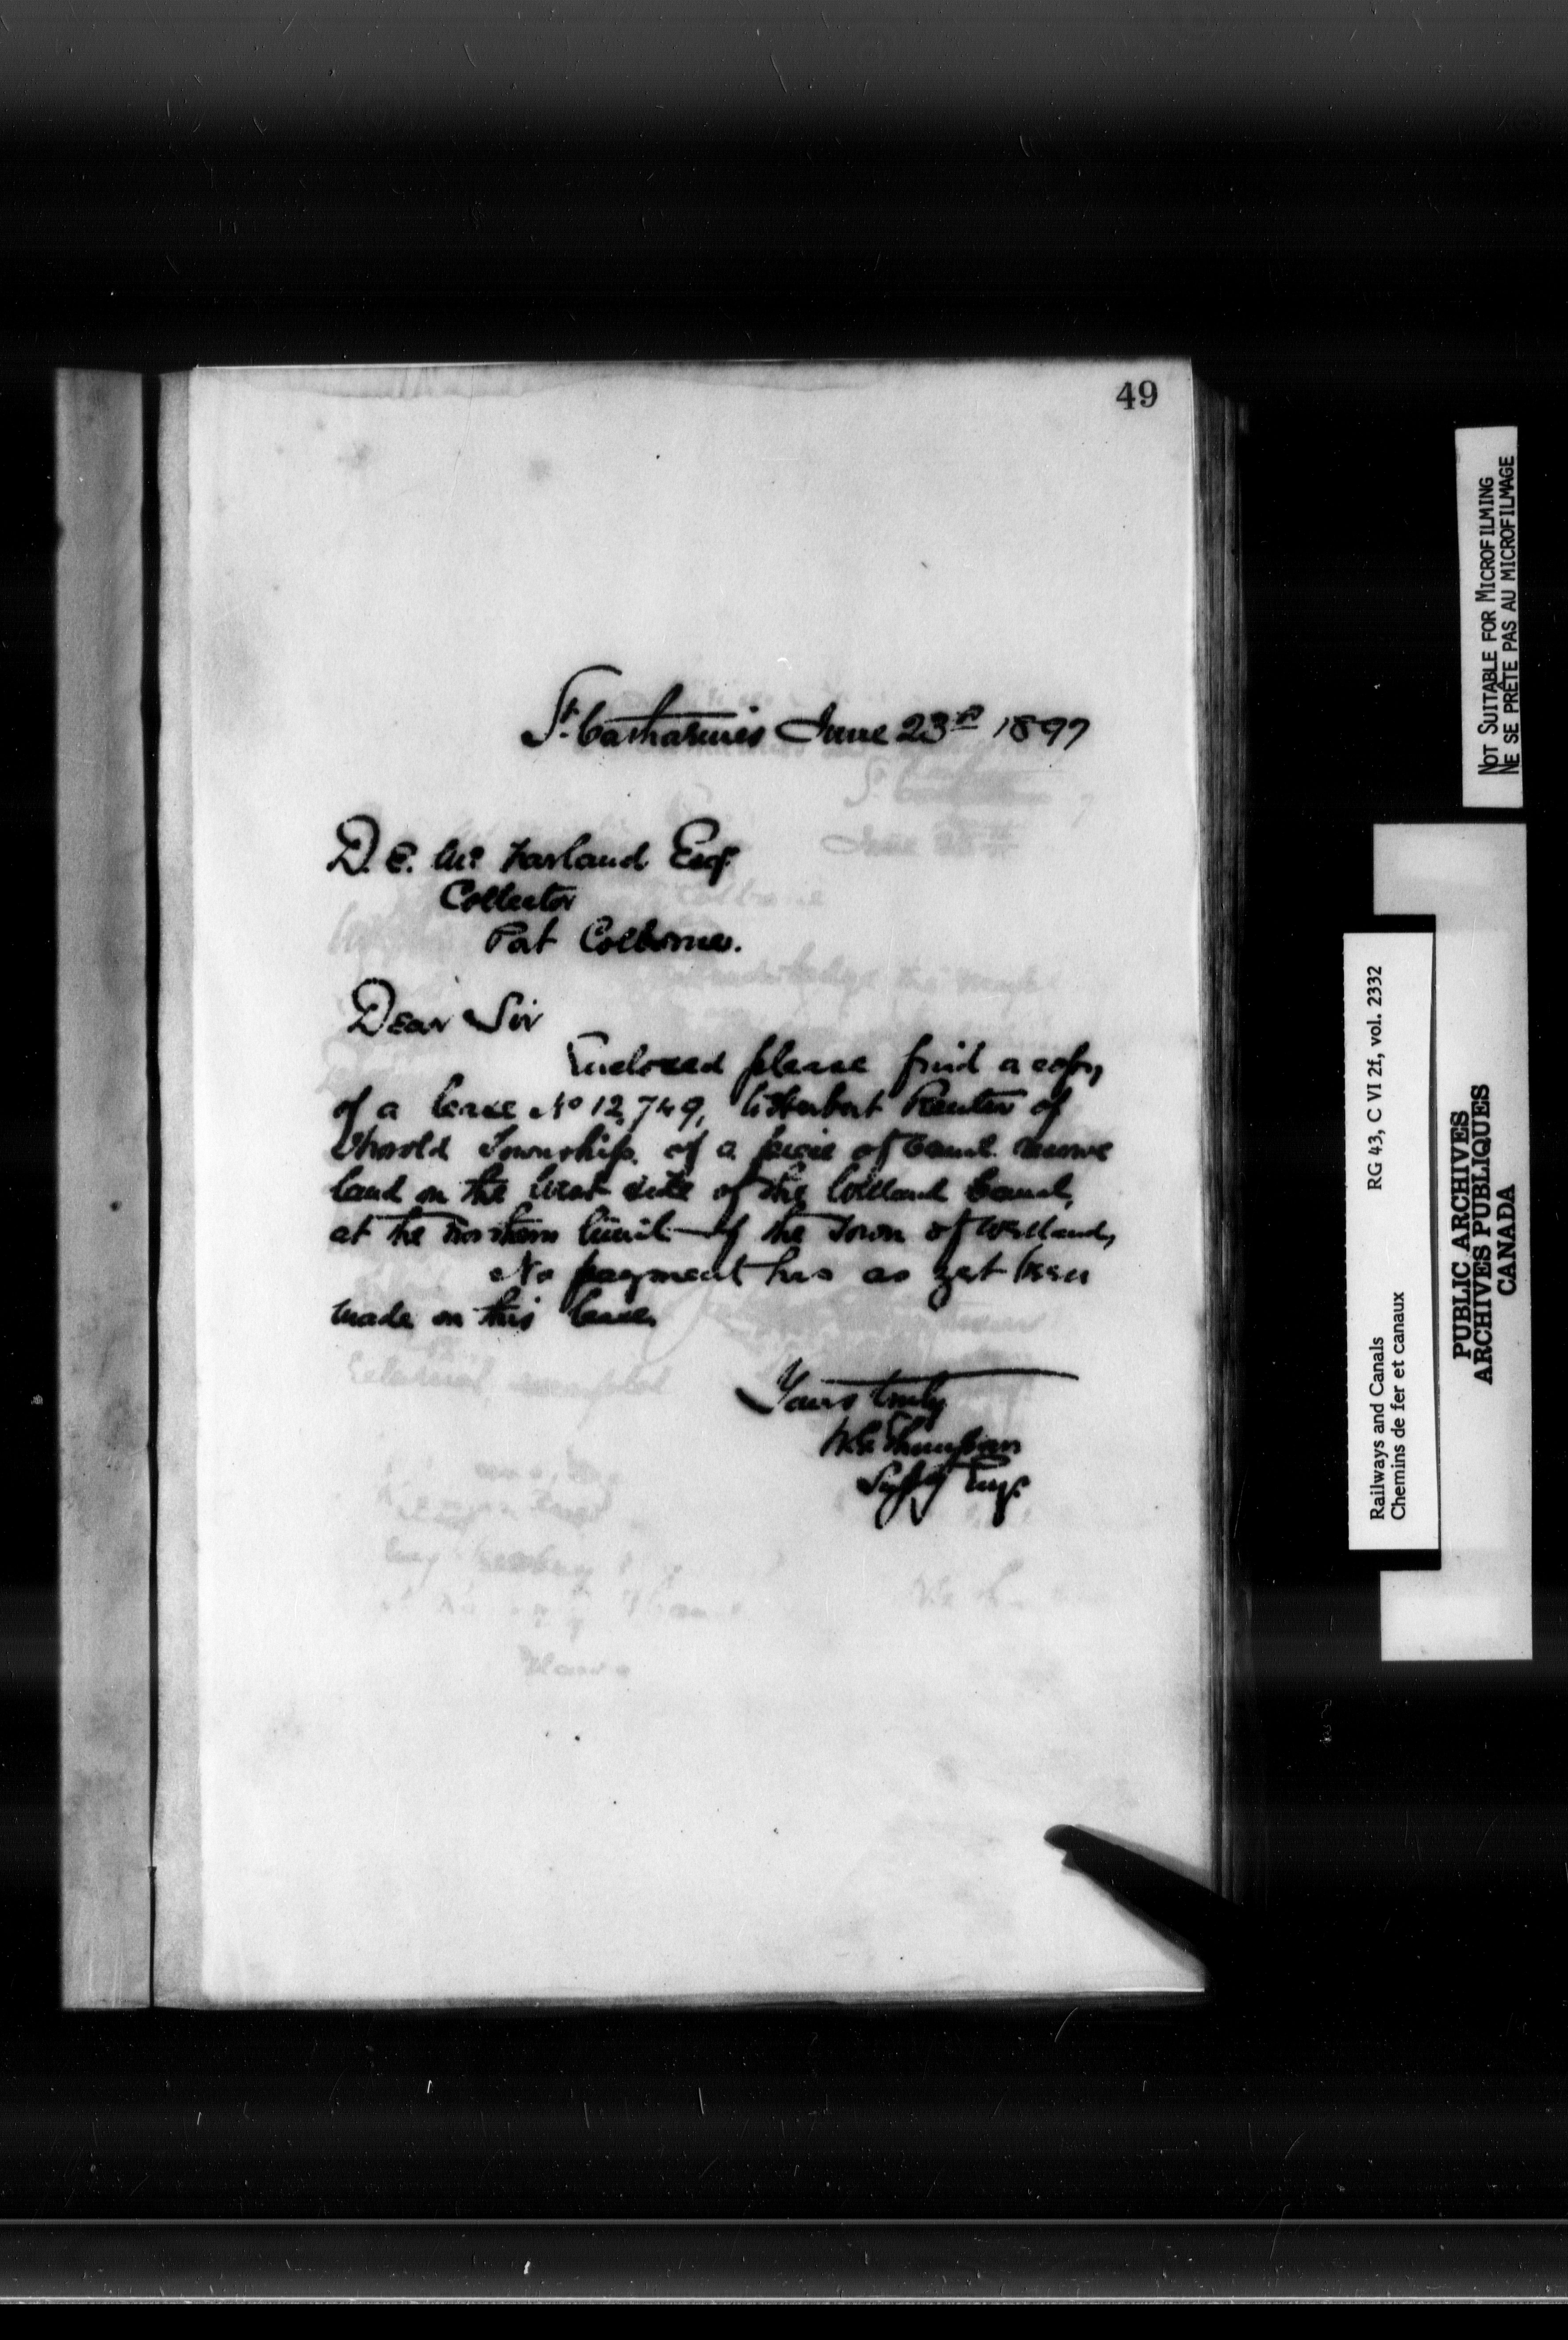 49
St. Catharines June 23rd 1897
D. E. Mc Farland Esqr
Collector
Port Colborne.
Dear Sir
Enclosed please find a copy
of a lease No 12,749, to Herbert Reuter of
Thorold Township, of a piece of Canal reserve
land on the West side of the Welland Canal,
at the northern limit of the Town of Welland,
No payment has as yet been
made on this lease.
Yours truly
W.G. Thompson
Suptg Engr
NOT SUITABLE FOR MICROFILMING
NE SE PRÊTE PAS AU MICROFILMAGE
RG 43, C VI 2f, vol. 2332
Railways and Canals
Chemins de fer et canaux
PUBLIC ARCHIVES
ARCHIVES PUBLIQUES
CANADA